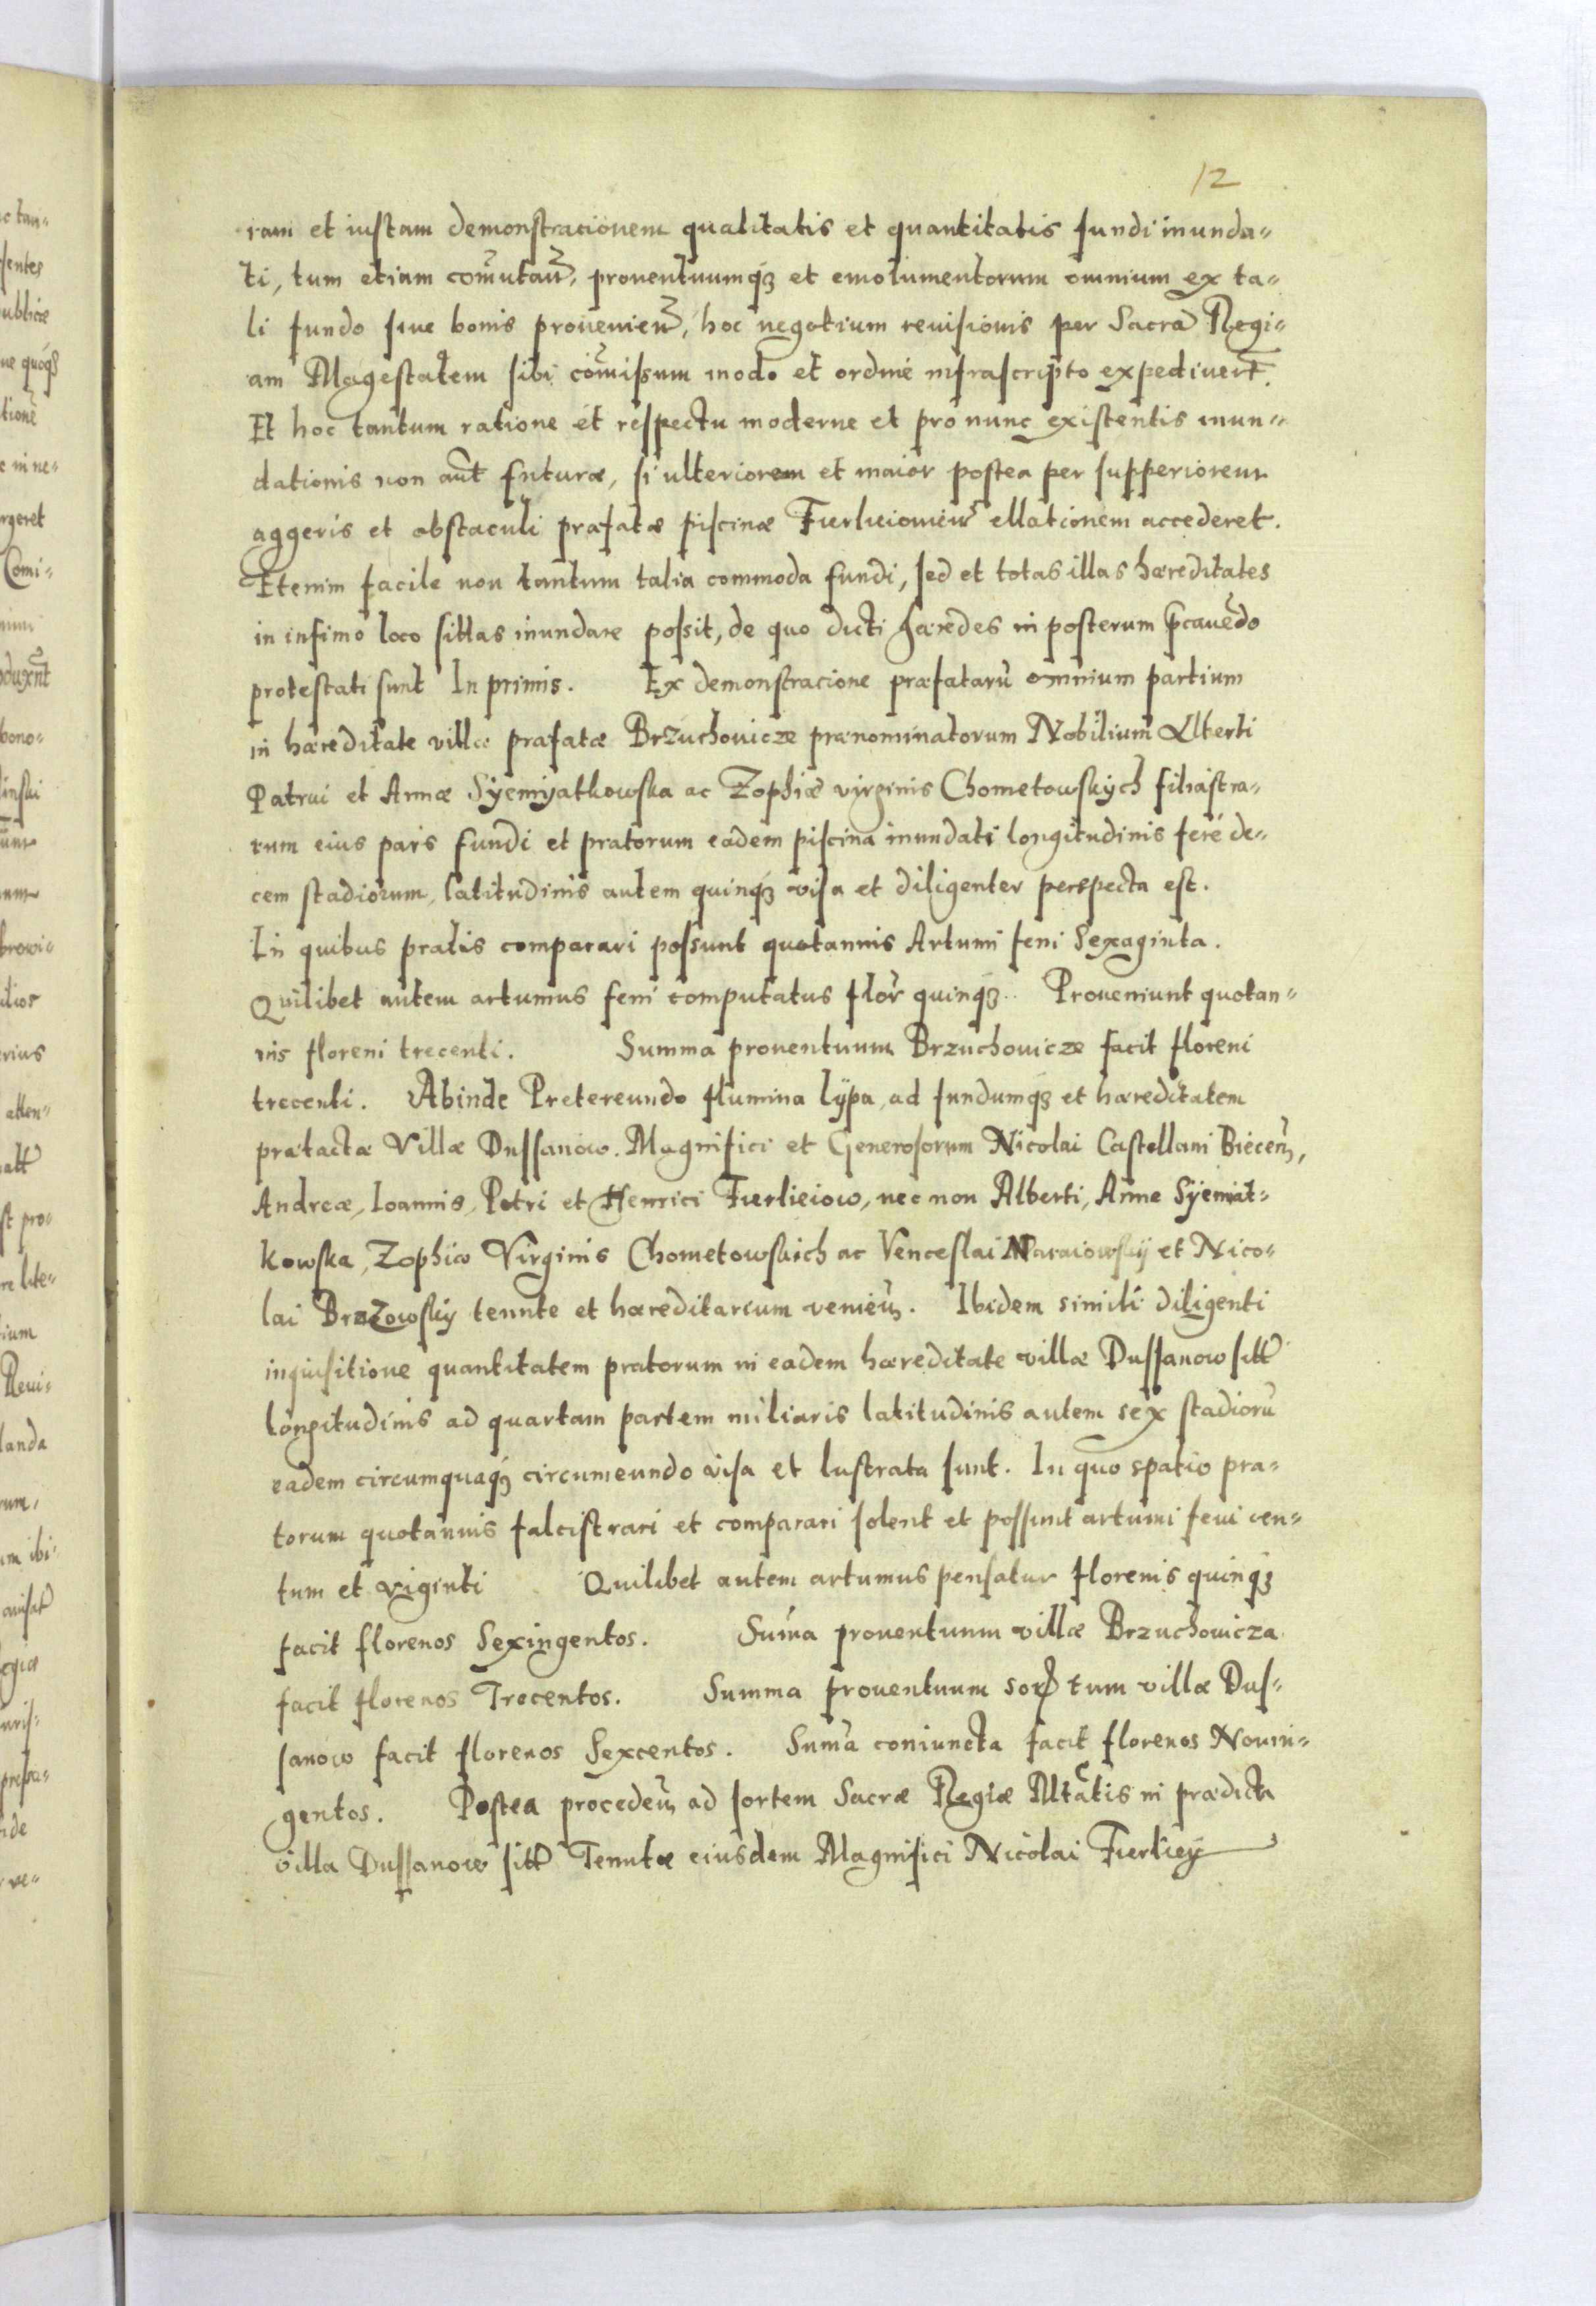 12
ram et iustam demonstracionem qualitatis et quantitatis fundi inunda-
ti, tum etiam comutan, prouentuumq3 et emolumentorum omnium ex ta-
li fundo siue bonis prouenien, hoc negotium reuisionis per Sacrā Regi-
am Magestatem sibi comissum modo et ordine infrascripto expediuert.
Et hoc tantum ratione et respectu moderne et pro nunc existentis inun-
dationis non aut̄ futuræ, si ulteriorem et maior postea per supperiorem
aggeris et obstaculi præfatæ piscinæ ellationem accederet.
Etenim facile non tantum talia commoda fundi, sed et totas illas hæreditates
in infimo loco sittas inundare possit, de quo dicti hæredes in posterum p̄cauēdo
protestati sunt In primis. Ex demonstracione præfatarū omnium partium
in hæreditate villæ præfatæ Brzuchouicze prænominatorum Nobilium Alberti
Patrui et Annæ Syemyatkowska ac Zophiæ virginis Chometowskych filiastra-
rum eius pars fundi et pratorum eadem piscina inundati longitudinis fere de-
cem stadiorum, latitudinis autem quinq3 visa et diligenter perspecta est.
In quibus pratis comparari possunt quotannis Artumi feni Sexaginta.
Quilibet autem artumus feni computatus flor quinq3. Proueniunt quotan-
nis floreni trecenti. Summa prouentuum Brzuchouicze facit floreni
trecenti. Abinde Pretereundo flumina lÿpa, ad fundumq3 et hæreditatem
prætactæ Villæ Dussanow. Magnifici et Generosorum Nicolai Castellani Biecen,
Andreæ, Ioannis, Petri et Henrici Fierlieiow, nec non Alberti, Anne Syemiat-
kowska, Zophiæ Virginis Chometowskich ac Venceslai Naraiowskij et Nico-
lai Brzozowskij tennte et hæreditarium venien. Ibidem simili diligenti
inquisitione quantitatem pratorum in eadem hæreditate villæ Dussanow sitt
longitudinis ad quartam partem miliaris latitudinis autem sex stadiorū
eadem circumquaq3 circumeundo visa et lustrata sunt. In quo spatio pra-
torum quotannis falcistrari et comparari solent et possunt artumi feni cen-
tum et viginti Quilibet autem artumus pensatur florenis quinq3
facit florenos Sexingentos. Sum̄a prouentuum villæ Brzuchouicza
facit florenos Trecentos. Summa prouentuum sortum villæ Dus-
sanow facit florenos Sexcentos. Sum̄a coniuncta facit florenos Nonin-
gentos. Postea proceden ad sortem Sacræ Regiæ Mtatis in prædicta
villa Dussanow sitt Tenutæ eiusdem Magnifici Nicolai Fierliey